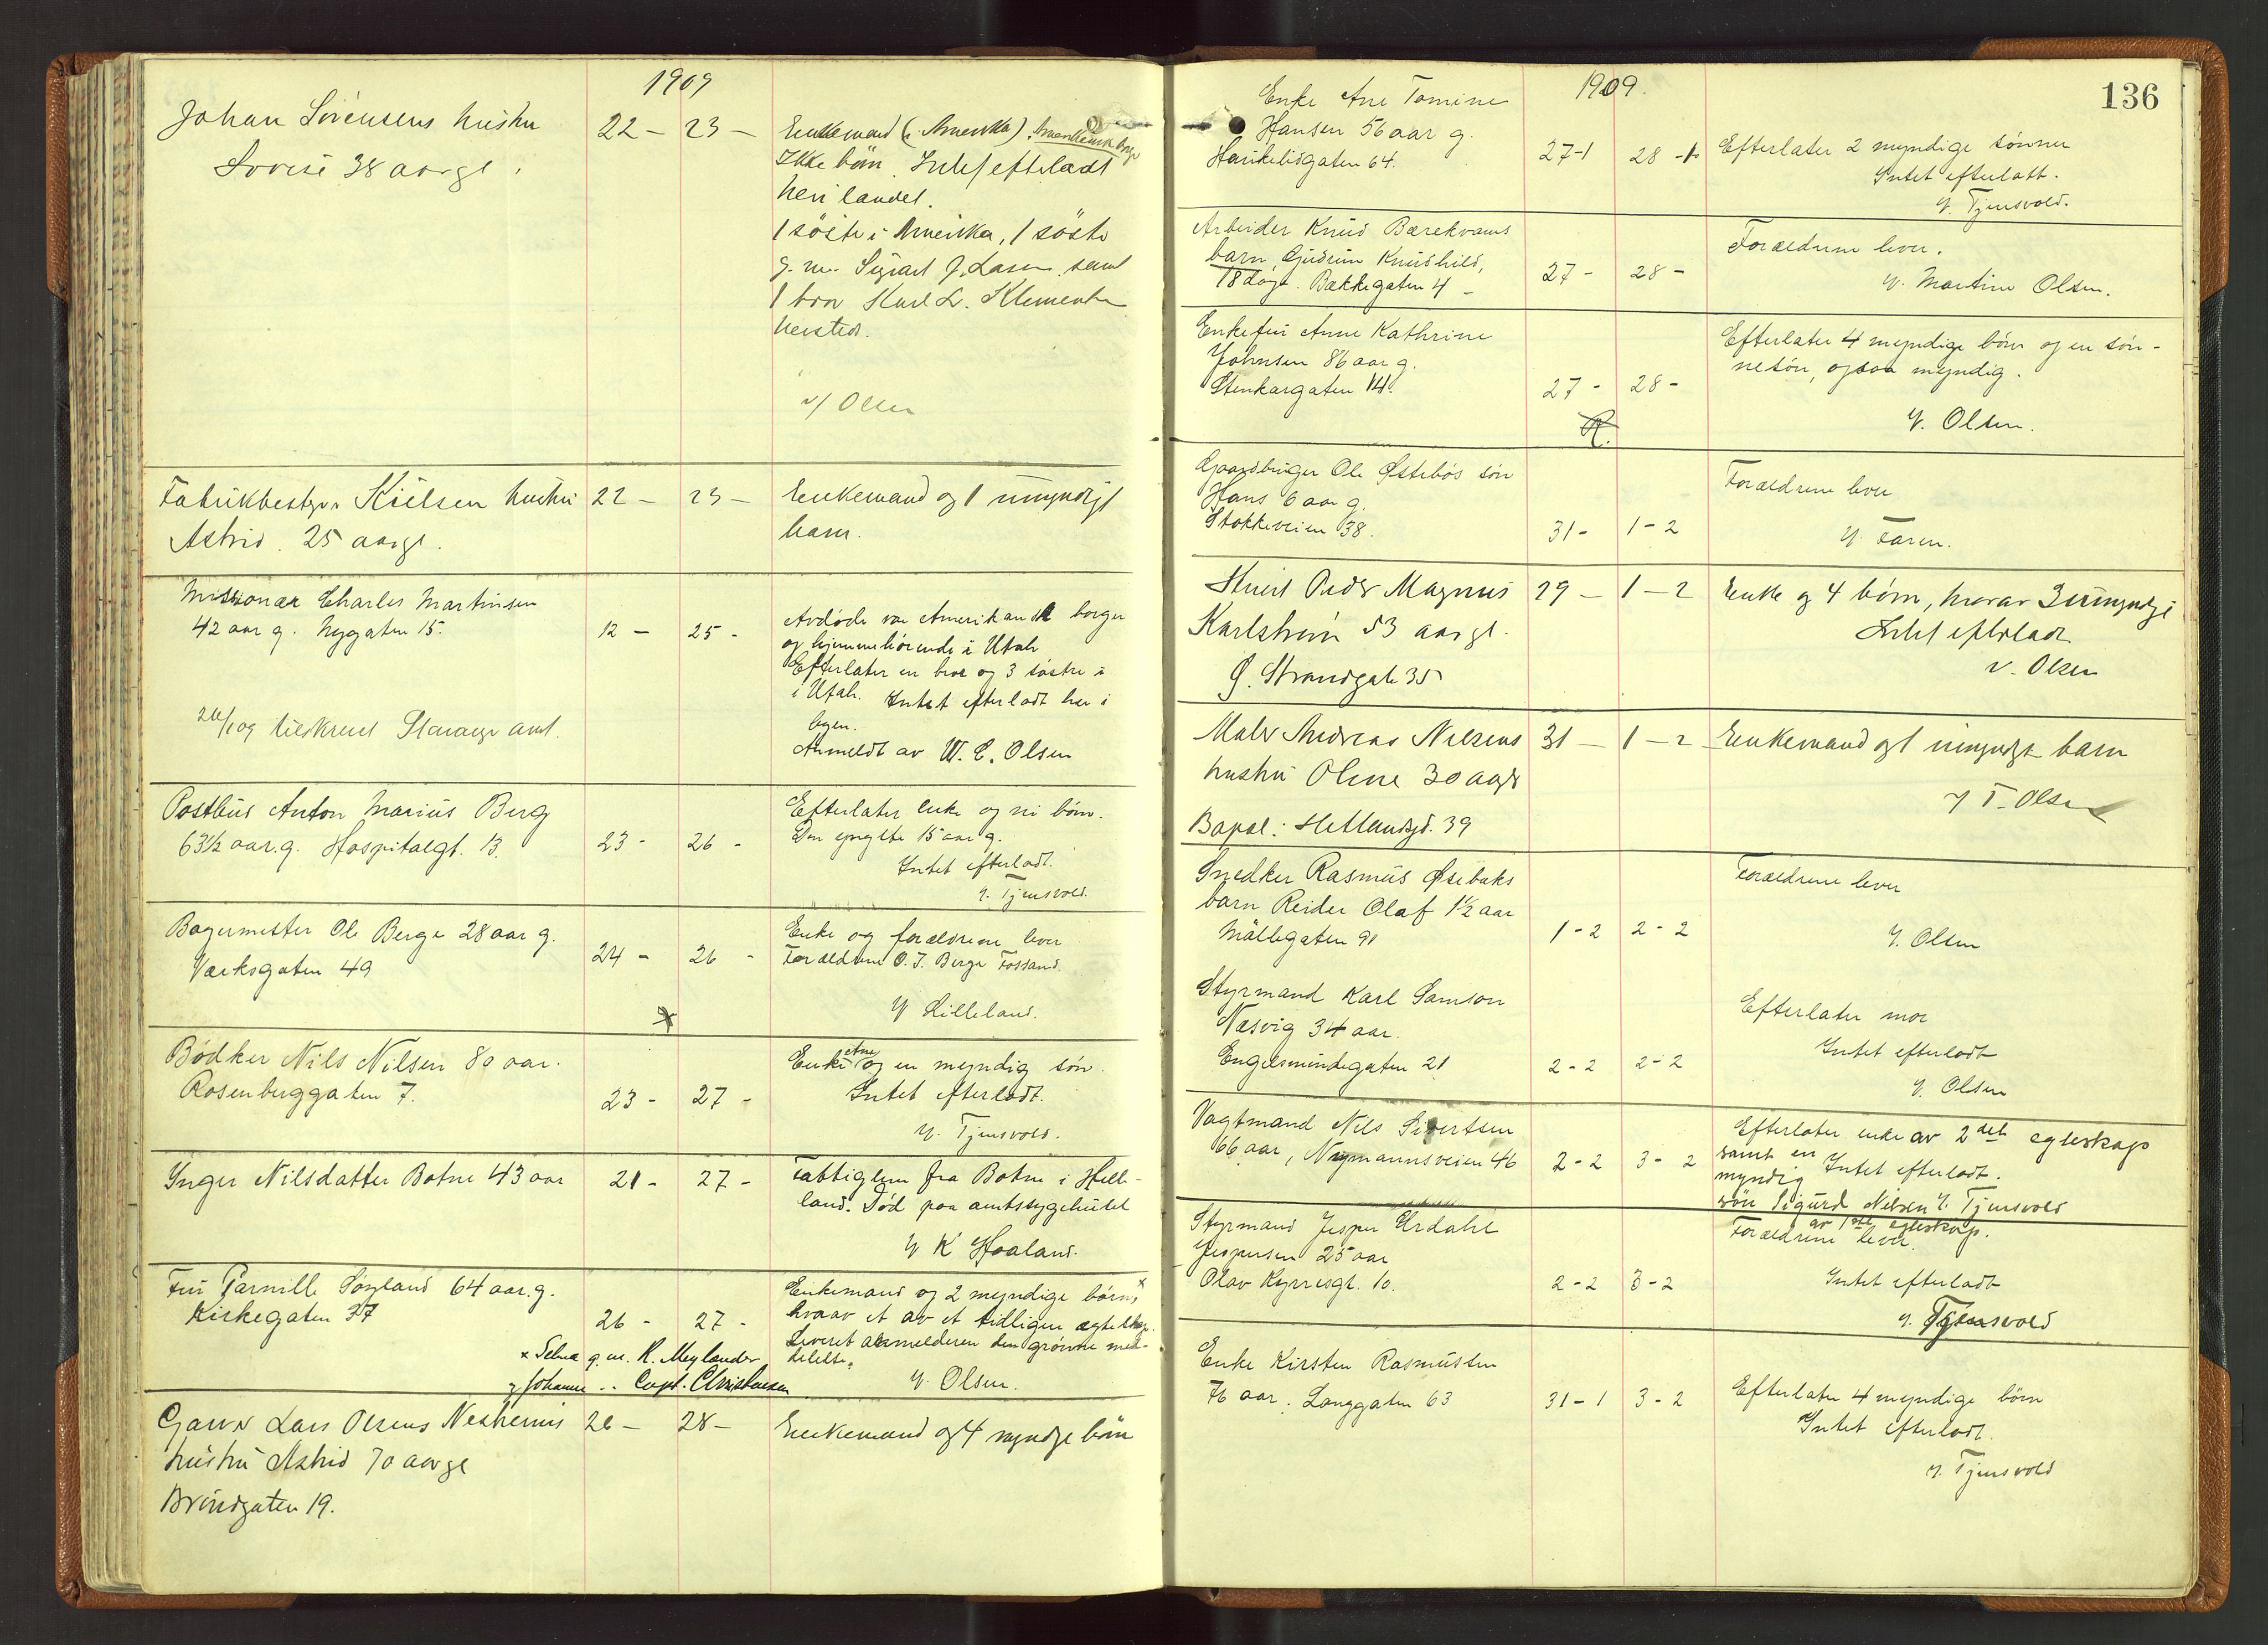 1909
Johan Sörensens hustru
Lovise 38 aargl.
22 – 23 –
Enkemand (i Amerika). Amerikansk borger
Ikke börn. Intet efterladt
her i landet.
1 söster i Amerika, 1 söster
g. m. Sigvart J. Larsen, samt
1 bror Karl L. Klementsen
hersteds.
v/ Olsen
Fabrikbestyrer Kielsens hustru
Astrid. 25 aargl.
22 – 23 –
Enkemand og 1 umyndigt
barn.
Missionær Charles Martinsen
42 aar g. Nygaten 15.
12 – 25 –
Avdöde var Amerikansk borger
og hjemmehörende i Utah
Efterlater en bror og 3 söstre i
i Utah. Intet efterladt her i
byen.
Anmeldt av W. C. Olsen
26/1 09 tilskrevet Stavanger amt.
Postbud Anton Marius Berg
63½ aar.g. Hospitalgt. 13.
23 – 26 –
Efterlater enke og ni börn.
Den yngste 15 aar g.
Intet efterladt.
v. Tjensvold.
Bagermester Ole Berge 28 aar g.
Værksgaten 49
24 – 26 –
Enke og forældrene lever
Forældrene O. J. Berge Fossand.
v/ Lilleland.
Bödker Nils Nilsen 80 aar.
Rosenberggaten 7.
23 – 27 –
Enke Ane og en myndig sön.
Intet efterladt.
v. Tjensvold.
Inger Nilsdatter Botne 43 aar
21 – 27 –
Fattiglem fra Botne i Helle-
land. Död paa amtssygehuset
v/ K Haaland.
Fru Parnille Söyland 64 aar.g.
Kirkegaten 37
26 – 27 –
Enkemand og 2 myndige börn, x
hvorav et av et tidligere ægteskap.
Leveret anmelderen den grönne med-
delelse.
x Selma g. m. R. Meylander
og Johanne – „ – Capt. Christensen
v. Olsen.
Garver Lars Olsens Nesheims
hustru Astrid 70 aar gl
Bröndgaten 19.
26 – 28 –
Enkemand og 4 myndige börn
136
1909.
Enke Ane Tomine
Hansen 56 aar g.
Haukelidgaten 64.
27-1 28-1
Efterlater 2 myndige sönner
Intet efterlatt.
v. Tjensvold.
Arbeider Knud Bærekvams
barn, Gudrun Knudhild,
18 dage. Bækkegaten 4 –
27 – 28 –
Forældrene lever.
v. Martine Olsen.
Enkefru Anne Kathrine
Johnsen 86 aar g.
Stenkargaten 14.
27 – 28 –
Efterlater 4 myndige börn og en sön-
nesön, ogsaa myndig.
v. Olsen.
R.
Gaardbruger Ole Østebös sön
Hans 6 aar g.
Stokkeveien 38.
31 – 1 – 2
Forældrene lever
v. Faren.
Stuert Peder Magnus
Karlström 53 aar gl.
Ø. Strandgate 35
29 – 1 – 2
Enke og 4 börn, hvorav 3 umyndige
Intet efterladt
v. Olsen
Maler Andreas Nilsens
hustru Oline 30 aargl
Bopæl: Hetlandsgt. 39
31 – 1 – 2
Enkemand og 1 umyndigt barn
v/ T. Olsen
Snedker Rasmus Øsebaks
barn Reider Olaf 1½ aar
Möllegaten 91
1 – 2 2 – 2
Forældrene lever
v. Olsen
Styrmand Karl Samson
Næsvig 34 aar.
Engelsmindegaten 21
2 – 2 2 – 2
Efterlater mor
Intet efterladt
v. Olsen
Vagtmand Nils Sivertsen
66 aar, Nymannsveien 46
2 – 2 3 – 2
Efterlater enke av 2det egteskap
samt en
myndig Intet efterladt.
sön Sigurd Nilsen v. Tjensvold
av 1ste egteskap.
Styrmand Jesper Urdahl
Jespersen 25 aar
Olav Kyrresgt. 10.
2 – 2 3 – 2
Forældrene lever.
Intet efterladt
v. Tjensvold
Enke Kirsten Rasmussen
76 aar. Langgaten 63
31 – 1 3 – 2
Efterlater 4 myndige börn
Intet efterladt.
v. Tjensvold